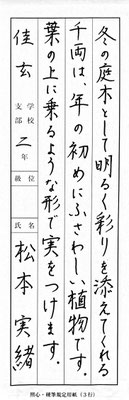 冬の庭木として明るく彩りを添えてくれる
千両は、年の初めにふさわしい植物です。
葉の上に乗るような形で実をつけます。
佳玄 学校支部 二年 級位 氏名 松本実緒
照心・硬筆規定用紙（3行）